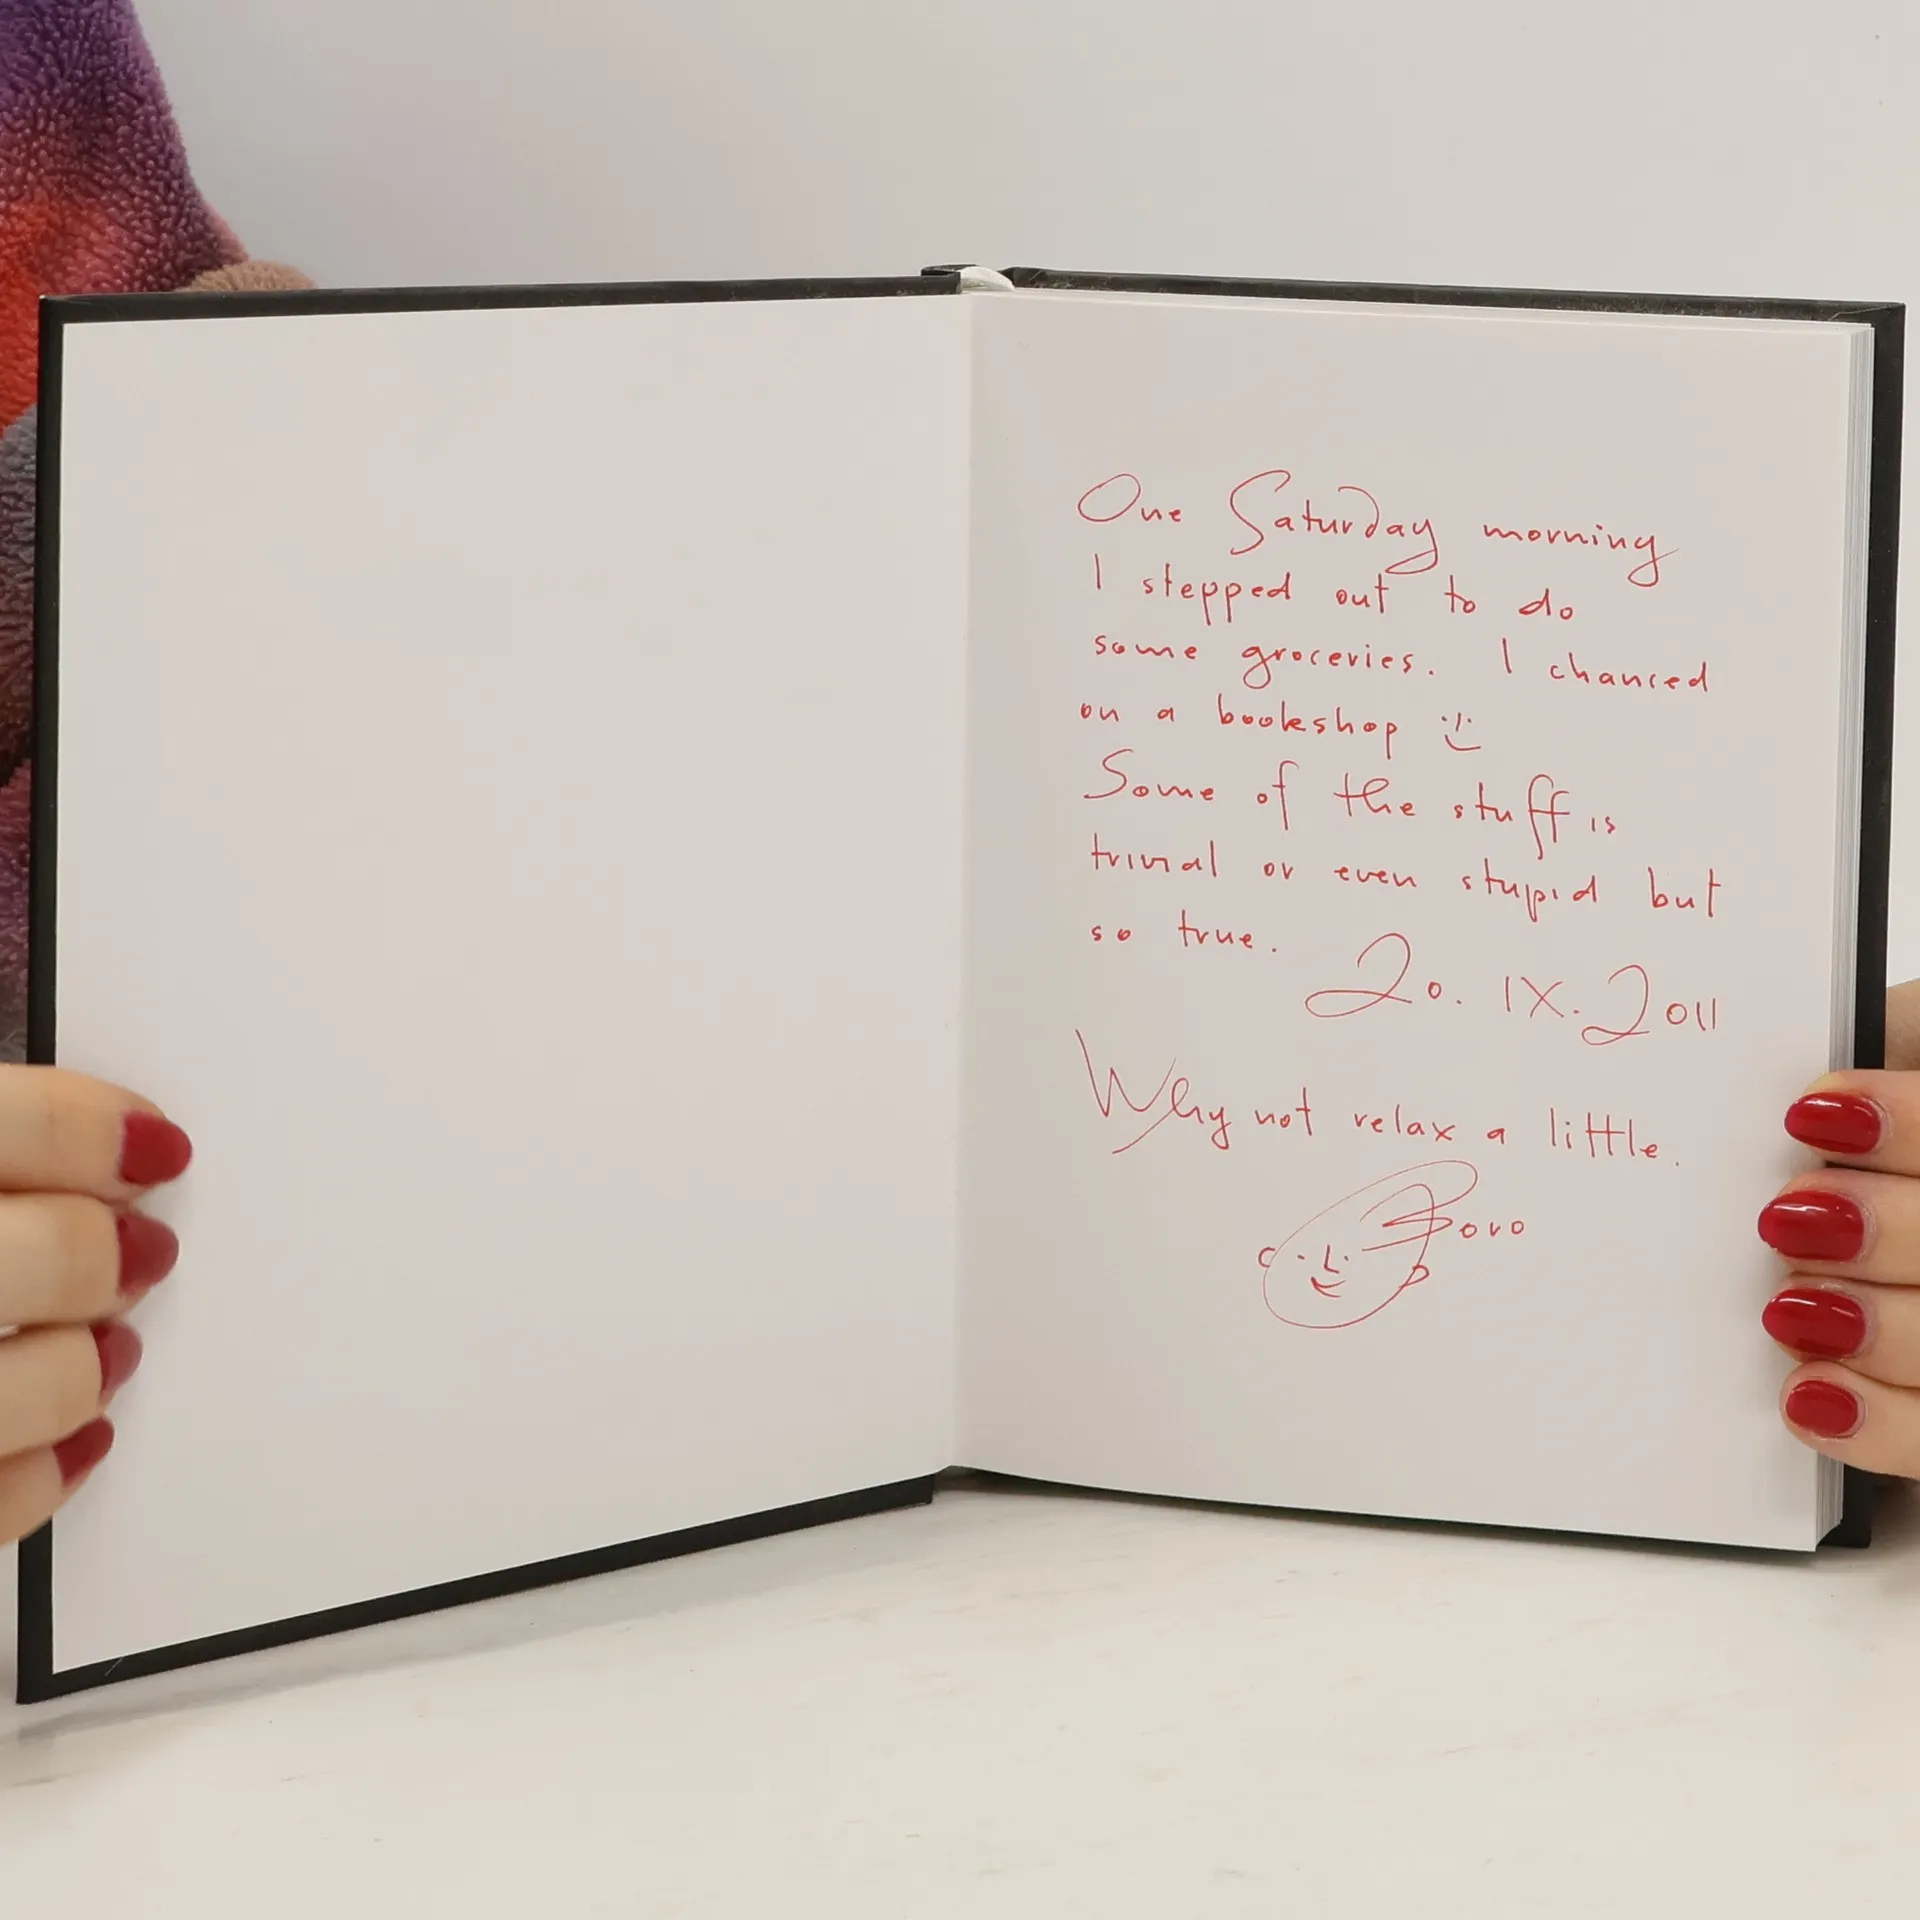 One Saturday morning
I stepped out to do
some groceries. I chanced
on a bookshop :)
Some of the stuff is
trivial or even stupid but
so true.
20. IX. 2011
Why not relax a little.
Boro